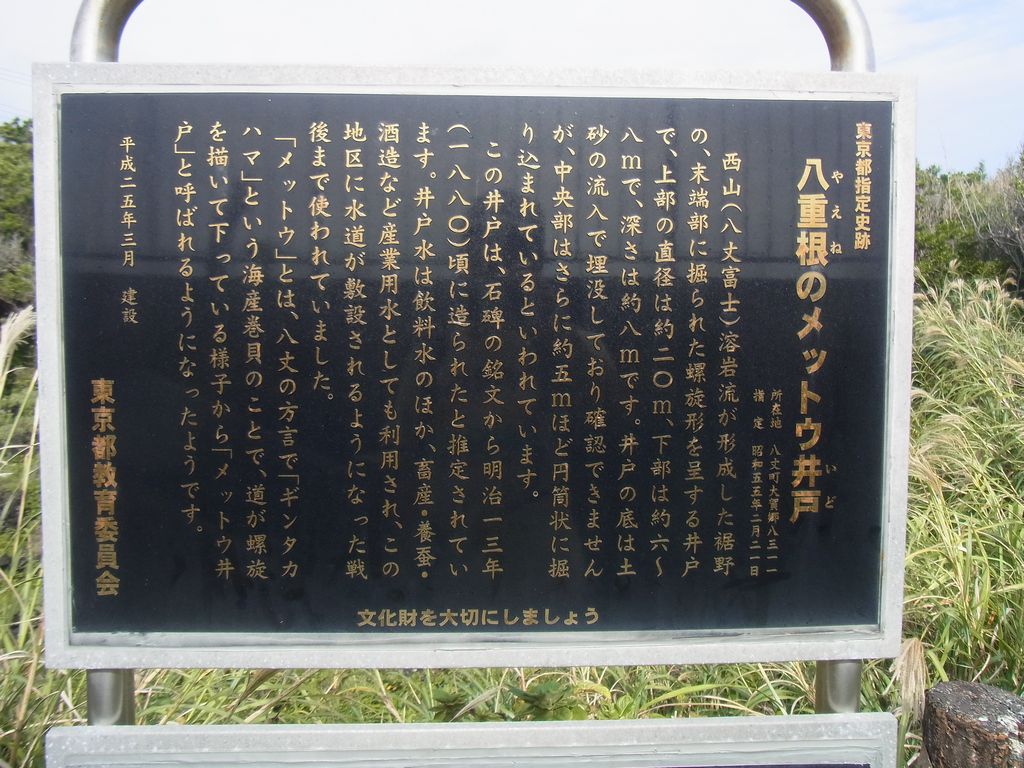 東京都指定史跡
八重根のメットウ井戸
やえね いど
所在地 八丈町大賀郷八三一一
指定 昭和五五年二月二一日
西山(八丈富士)溶岩流が形成した裾野
の、末端部に掘られた螺旋形を呈する井戸
で、上部の直径は約二〇m、下部は約六〜
八mで、深さは約八mです。井戸の底は土
砂の流入で埋没しており確認できません
が、中央部はさらに約五mほど円筒状に掘
り込まれているといわれています。
この井戸は、石碑の銘文から明治一三年
(一八八〇)頃に造られたと推定されてい
ます。井戸水は飲料水のほか、畜産・養蚕・
酒造など産業用水としても利用され、この
地区に水道が敷設されるようになった戦
後まで使われていました。
「メットウ」とは、八丈の方言で「ギンタカ
ハマ」という海産巻貝のことで、道が螺旋
を描いて下っている様子から「メットウ井
戸」と呼ばれるようになったようです。
平成二五年三月 建設
東京都教育委員会
文化財を大切にしましょう